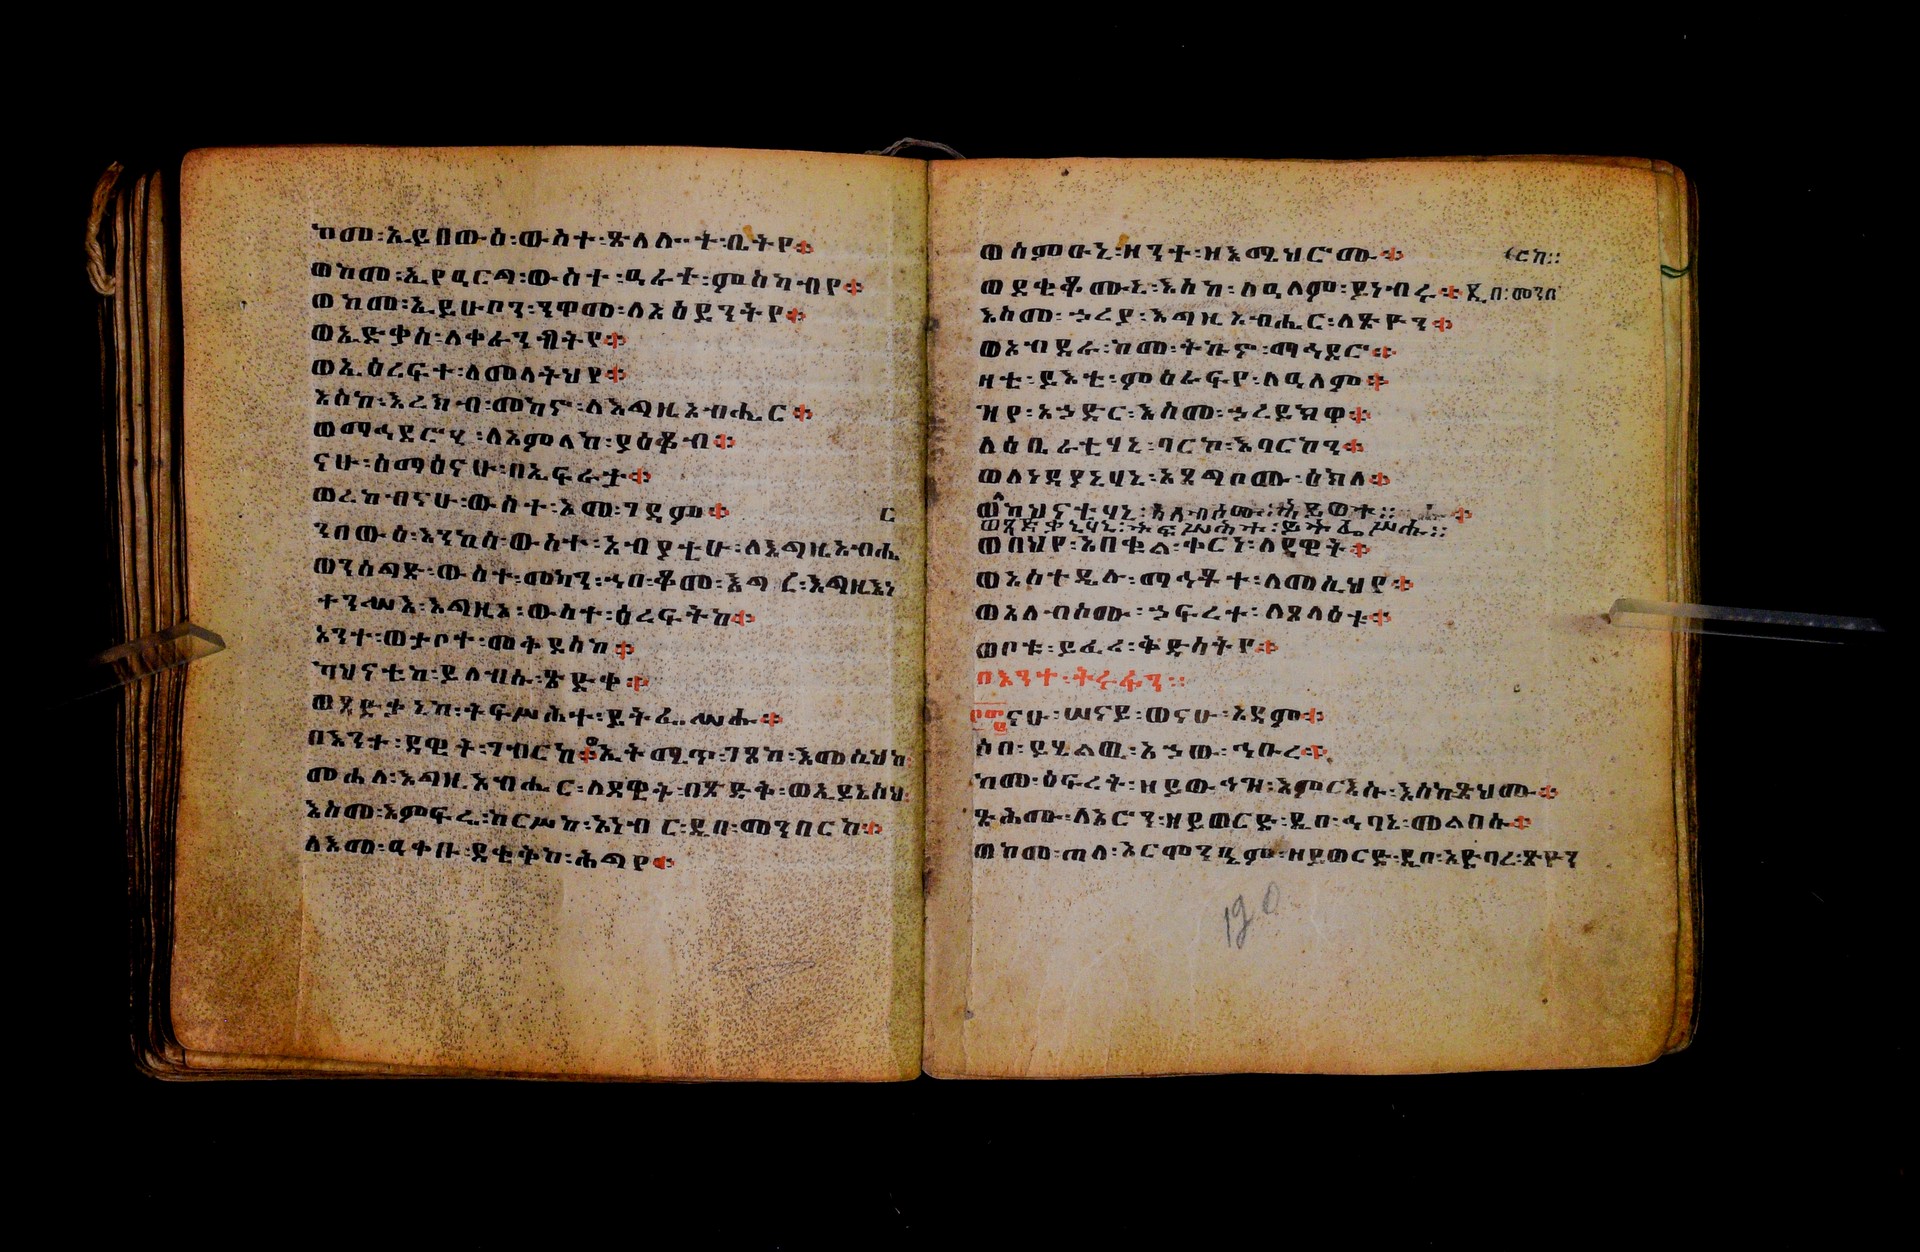 ከመ፡ኢይበውዕ፡ውስተ፡ጽላሎተ፡ቤትየ።
ወከመ፡ኢየዐርግ፡ውስተ፡ዓራተ፡ምስካብየ።
ወከመ፡ኢይሁቦን፡ንዋመ፡ለአዕይንትየ።
ወኢድቃስ፡ለቀራንብትየ።
ወኢዕረፍተ፡ለመላትህየ።
እስከ፡እረክብ፡መከኖ፡ለእግዚአብሔር።
ወማኅደሮሂ፡ለአምላከ፡ያዕቆብ።
ናሁ፡ሰማዕናሁ፡በኤፍራታ።
ወረከብናሁ፡ውስተ፡እመ፡ገዳም። ር
ንበውዕ፡እንኪሰ፡ውስተ፡አብያቲሁ፡ለእግዚአብሔ
ወንሰግድ፡ውስተ፡መካን፡ኀበ፡ቆመ፡እግረ፡እግዚእነ
ተንሥእ፡እግዚእ፡ውስተ፡ዕረፍትከ።
አንተ፡ወታቦተ፡መቅደስከ።
ካህናቲከ፡ይለብሱ፡ጽድቀ።
ወጻድቃኒከ፡ትፍሥሕተ፡ይትፌሥሑ።
በእንተ፡ዳዊት፡ገብርከ።ኢትሚጥ፡ገጸከ፡እመሲህከ
መሐለ፡እግዚአብሔር፡ለዳዊት፡በጽድቅ፡ወኢይኔስህ
እስመ፡እምፍሬ፡ከርሥከ፡አነብር፡ዲበ፡መንበርከ።
ለእመ፡ዐቀቡ፡ደቂቅከ፡ሕግየ።
ወሰምዑኒ፡ዘንተ፡ዘእሜህሮሙ። ርከ።
ወደቂቆሙኒ፡እስከ፡ለዓለም፡ይነብሩ።ዲበ፡መንበ
እስመ፡ኃረያ፡እግዚአብሔር፡ለጽዮን።
ወአብደራ፡ከመ፡ትኩኖ፡ማኅደሮ።
ዛቲ፡ይእቲ፡ምዕራፍየ፡ለዓለም።
ዝየ፡አኃድር፡እስመ፡ኃረይክዋ።
ለዕቤራቲሃኒ፡ባርኮ፡እባርከን።
ወለነዳያኒሃኒ፡አጸግቦሙ፡ዕክለ።
ወለካህናቲሃኒ፡አለብሶሙ፡ሕይወተ።
ወጻድቃኒሃኒ፡ትፍሥሕተ፡ይትፌሥሑ።
ወበህየ፡አበቁል፡ቀርነ፡ለዳዊት።
ወአስተዴሉ፡ማኅቶተ፡ለመሲህየ።
ወአለብሶሙ፡ኃፍረተ፡ለጸላዕቱ።
ወቦቱ፡ይፈሪ፡ቅድሳትየ።
በእንተ፡ትሩፋን።
ናሁ፡ሠናይ፡ወናሁ፡አዳም።
ሶበ፡ይሄልዉ፡አኃው፡ኅቡረ።
ከመ፡ዕፍረት፡ዘይውኅዝ፡እምርእሱ፡እስከጽህሙ።
ጽሕሙ፡ለአሮን፡ዘይወርድ፡ዲበ፡ኅባኔ፡መልበሱ።
ወከመ፡ጠለ፡አርሞንኤም፡ዘይወርድ፡ዲበ፡አድባረ፡ጽዮን
120